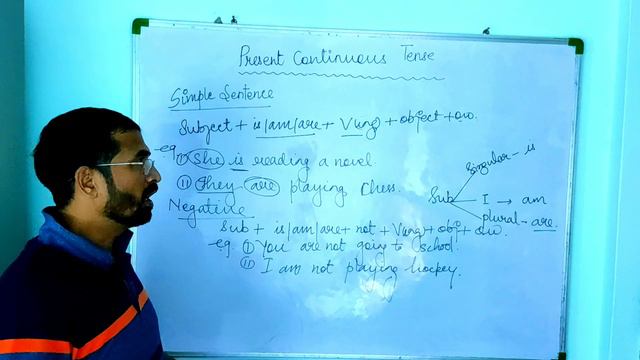 Present Continuous Tense
Simple Sentence
Subject + is/am/are + Ving + object + ow.
eg. (i) She is reading a novel.
(ii) They are playing Chess.
Sub
Singular - is
I → am
plural - are.
Negative
Sub + is/am/are + not + Ving + obj + ow.
eg. (i) You are not going to school.
(ii) I am not playing hockey.